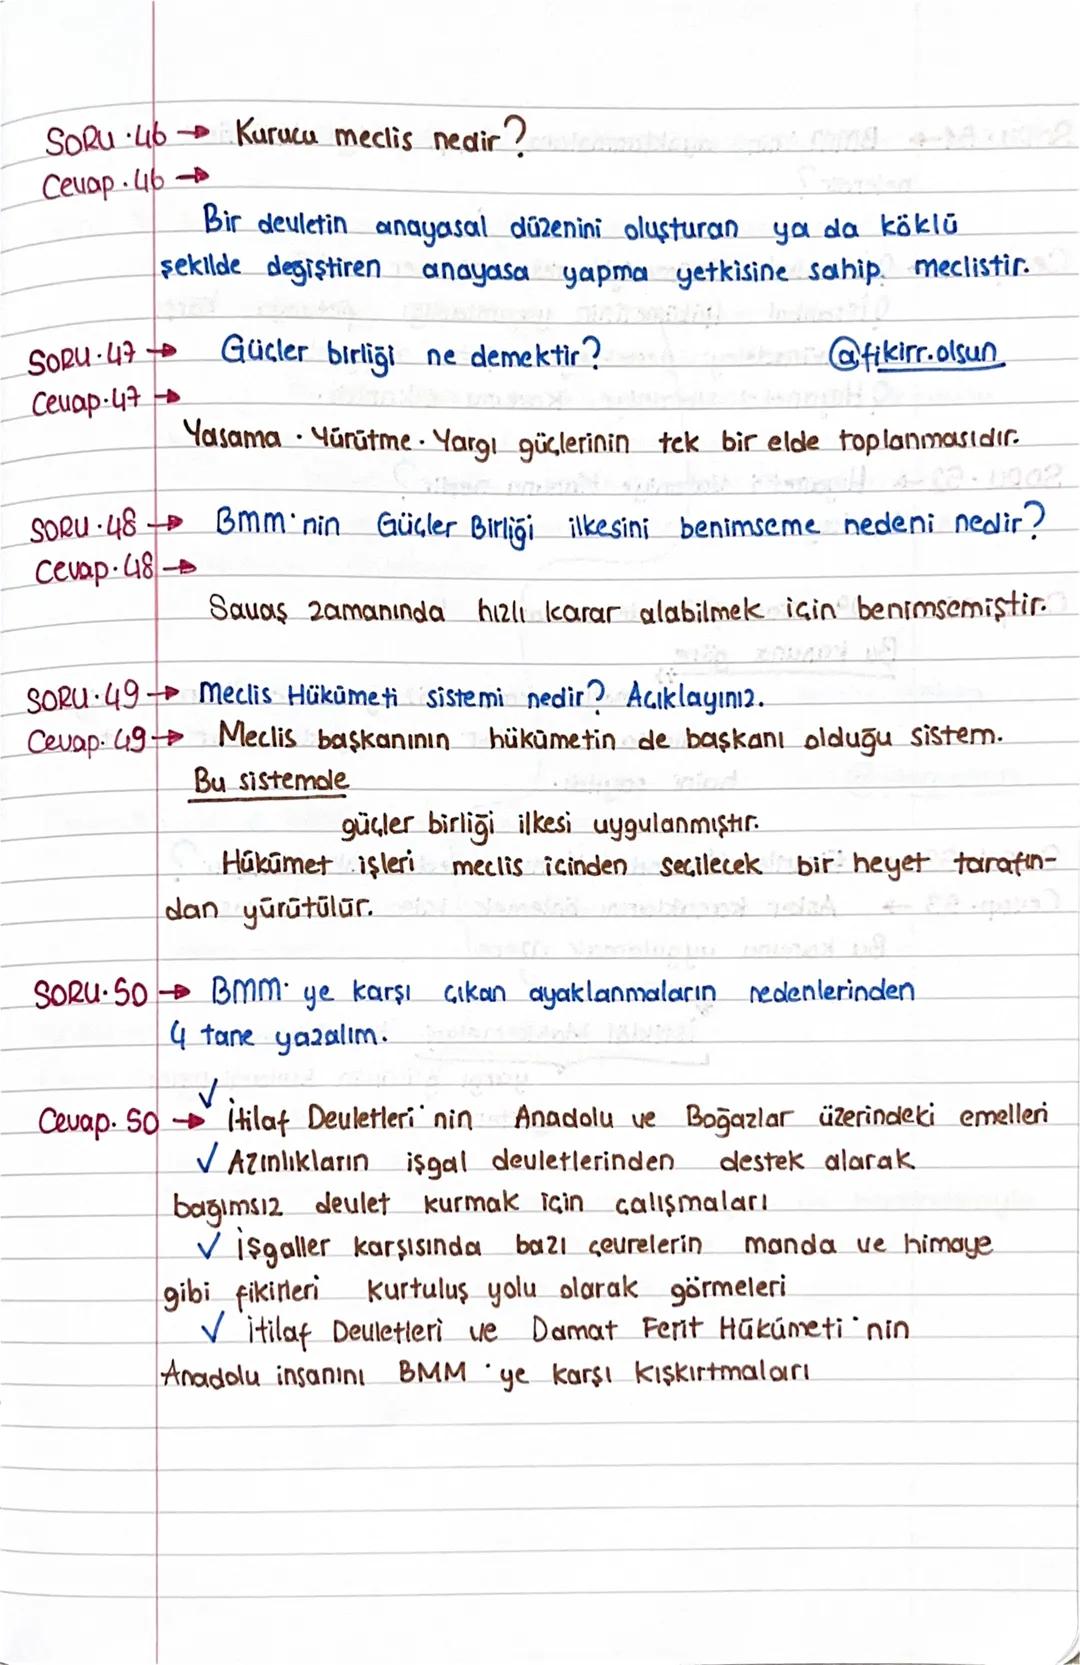 SORU.46 → Kurucu meclis nedir?
Cevap.46 →
Bir devletin anayasal düzenini oluşturan ya da köklü
şekilde değiştiren anayasa yapma yetkisine sahip meclistir.
SORU.47 → Güçler birliği ne demektir? @fikirr.olsun
Cevap.47 →
Yasama . Yürütme . Yargı güçlerinin tek bir elde toplanmasıdır.
SORU.48 → Bmm'nin Güçler Birliği ilkesini benimseme nedeni nedir?
Cevap.48 →
Savaş zamanında hızlı karar alabilmek için benimsemiştir.
SORU.49 → Meclis Hükümeti sistemi nedir? Açıklayınız.
Cevap.49 → Meclis başkanının hükümetin de başkanı olduğu sistem.
Bu sistemde
güçler birliği ilkesi uygulanmıştır.
Hükümet işleri meclis içinden seçilecek bir heyet tarafın-
dan yürütülür.
SORU.50 → BMM'ye karşı çıkan ayaklanmaların nedenlerinden
4 tane yazalım.
Cevap.50 → ✓ İtilaf Devletleri'nin Anadolu ve Boğazlar üzerindeki emelleri
✓ Azınlıkların işgal devletlerinden destek alarak
bağımsız devlet kurmak için çalışmaları
✓ İşgaller karşısında bazı çevrelerin manda ve himaye
gibi fikirleri kurtuluş yolu olarak görmeleri
✓ İtilaf Devletleri ve Damat Ferit Hükümeti'nin
Anadolu insanını BMM'ye karşı kışkırtmaları